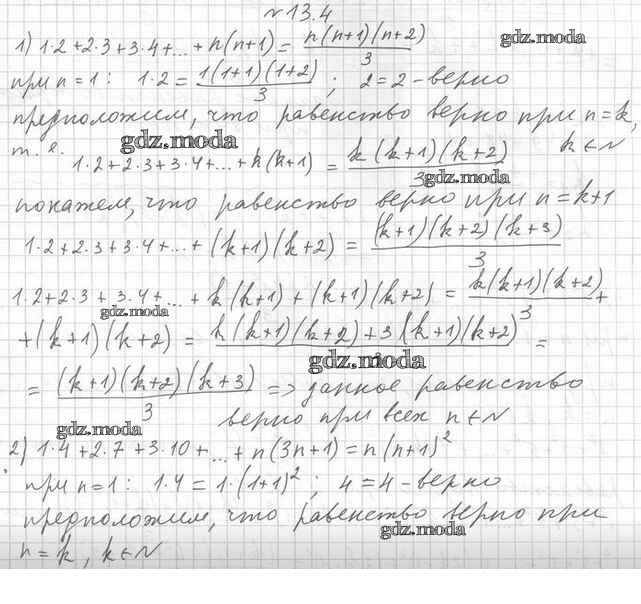 №13.4
1) 1·2+2·3+3·4+...+n(n+1)= n(n+1)(n+2)/3
gdz.moda
при n=1: 1·2= 1(1+1)(1+2)/3 ; 2=2-верно
предположим, что равенство верно при n=k,
gdz.moda
т.е. 1·2+2·3+3·4+...+k(k+1) = k(k+1)(k+2)/3 k∈N
gdz.moda
покажем, что равенство верно при n=k+1
1·2+2·3+3·4+...+(k+1)(k+2) = (k+1)(k+2)(k+3)/3
1·2+2·3+3·4+...+k(k+1)+(k+1)(k+2) = k(k+1)(k+2)/3 +
gdz.moda
+(k+1)(k+2) = k(k+1)(k+2)+3(k+1)(k+2)/3 =
gdz.moda
= (k+1)(k+2)(k+3)/3 => данное равенство
верно при всех n∈N
gdz.moda
2) 1·4+2·7+3·10+...+n(3n+1)=n(n+1)²
при n=1: 1·4=1·(1+1)²; 4=4-верно
предположим, что равенство верно при
gdz.moda
n=k, k∈N